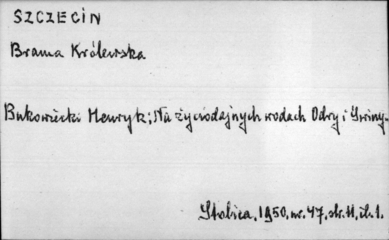 SZCZECIN
Brama Królewska
Bukowiecki Henryk; Na życiodajnych wodach Odry i Świny.
Stolica, 1950, nr. 47, str. 11, il. 1.